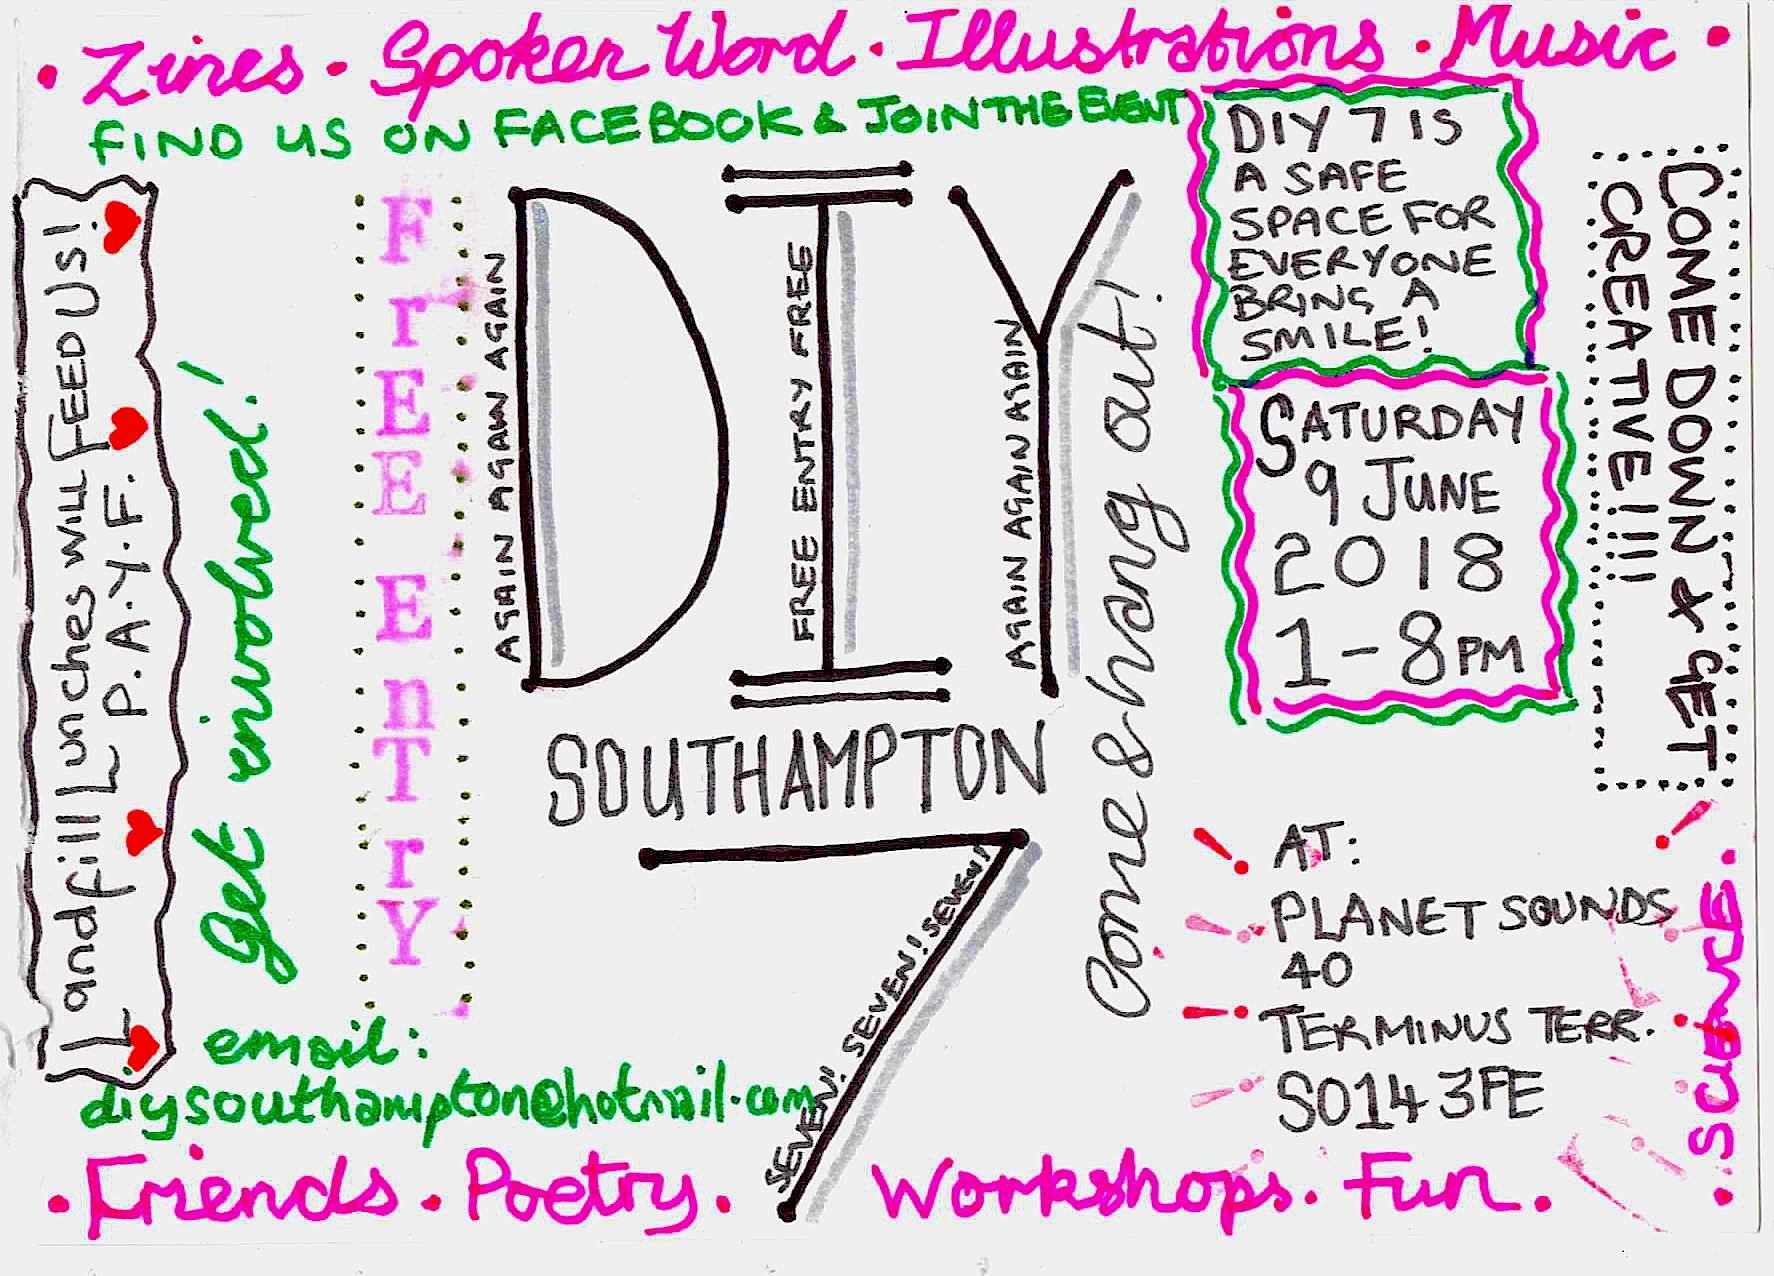 · Zines · Spoken Word · Illustrations · Music ·
FIND US ON FACEBOOK & JOIN THE EVENT
Landfill Lunches will FEED US!
P.A.Y.F.
Get involved!
FrEE EnTrY
AGAIN AGAIN AGAIN
DIY
FREE ENTRY FREE
AGAIN AGAIN AGAIN
SOUTHAMPTON
7
SEVEN! SEVEN! SEVEN! SEVEN!
Come & hang out!
DIY 7 IS
A SAFE
SPACE FOR
EVERYONE
BRING A
SMILE!
SATURDAY
9 JUNE
2018
1-8PM
COME DOWN & GET
CREATIVE!!!!
AT:
PLANET SOUNDS
40
TERMINUS TERR.
SO14 3FE
· SCIENCE ·
email:
diysouthampton@hotmail.com
· Friends · Poetry · Workshops · Fun ·